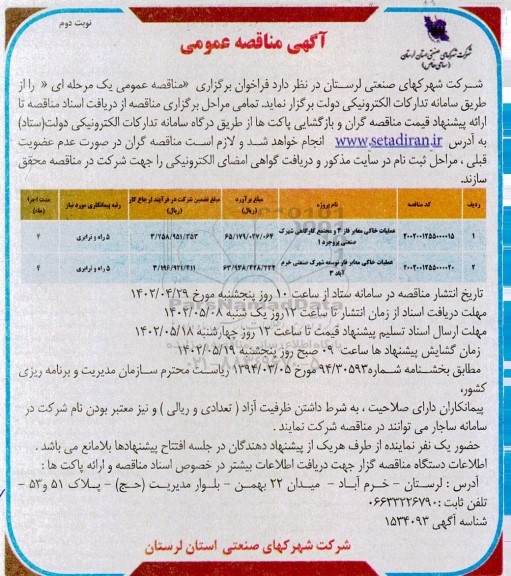 نوبت دوم
شرکت شهرکهای صنعتی استان لرستان
(سهامی خاص)
آگهی مناقصه عمومی
شـرکت شهرکهای صنعتی لرستـان در نظر دارد فراخوان برگزاری «مناقصه عمومی یک مرحله ای « را از
طریق سامانه تدارکات الکترونیکی دولت برگزار نماید. تمامی مراحل برگزاری مناقصه از دریافت اسناد مناقصه تا
ارائه پیشنهاد قیمت مناقصه گران و بازگشایی پاکت ها از طریق درگاه سامانه تدارکات الکترونیکی دولت(ستاد)
به آدرس www.setadiran.ir انجام خواهد شد و لازم است مناقصه گران در صورت عدم عضویت
قبلی ، مراحل ثبت نام در سایت مذکور و دریافت گواهی امضای الکترونیکی را جهت شرکت در مناقصه محقق
سازند.
ردیف کد مناقصه نام پروژه مبلغ برآورد (ریال) مبلغ تضمین شرکت در فرآیند ارجاع کار (ریال) رتبه پیمانکاری مورد نیاز مدت اجرا (ماه)
۱ ۲۰۰۲۰۰۱۲۵۵۰۰۰۰۱۵ عملیات خاکی معابر فاز ۳ و مجتمع کارگاهی شهرک صنعتی بروجرد ۱ ۶۵/۱۷۹/۰۲۷/۰۶۴ ۳/۲۵۸/۹۵۱/۳۵۳ ۵ راه و ترابری ۴
۲ ۲۰۰۲۰۰۱۲۵۵۰۰۰۰۲۰ عملیات خاکی معابر فاز توسعه شهرک صنعتی خرم آباد ۳ ۶۳/۹۳۸/۴۲۸/۲۲۴ ۳/۱۹۶/۹۲۱/۴۱۱ ۵ راه و ترابری ۴
تاریخ انتشار مناقصه در سامانه ستاد از ساعت ۱۰ روز پنجشنبه مورخ ۱۴۰۲/۰۴/۲۹
مهلت دریافت اسناد از زمان انتشار تا ساعت ۱۲روز یک شنبه ۱۴۰۲/۰۵/۰۸
مهلت ارسال اسناد تسلیم پیشنهاد قیمت تا ساعت ۱۳ روز چهارشنبه ۱۴۰۲/۰۵/۱۸
زمان گشایش پیشنهاد ها ساعت ۰۹ صبح روز پنجشنبه ۱۴۰۲/۰۵/۱۹
مطابق بخشنامه شماره۹۴/۳۰۵۹۳ مورخ ۱۳۹۴/۰۳/۰۵ ریاست محترم سازمان مدیریت و برنامه ریزی
کشور،
پیمانکاران دارای صلاحیت ، به شرط داشتن ظرفیت آزاد ( تعدادی و ریالی ) و نیز معتبر بودن نام شرکت در
سامانه ساجار می توانند در مناقصه شرکت نمایند .
حضور یک نفر نماینده از طرف هریک از پیشنهاد دهندگان در جلسه افتتاح پیشنهادها بلامانع می باشد .
اطلاعات دستگاه مناقصه گزار جهت دریافت اطلاعات بیشتر در خصوص اسناد مناقصه و ارائه پاکت ها :
آدرس : لرستان - خرم آبـاد - میدان ۲۲ بهمـن - بلـوار مدیریـت (حـج) - پـلاک ۵۱ و۵۳ -
تلفن ثابت :۰۶۶۳۳۲۲۶۷۹۰
شناسه آگهی ۱۵۳۴۰۹۳
شرکت شهرکهای صنعتی استان لرستان